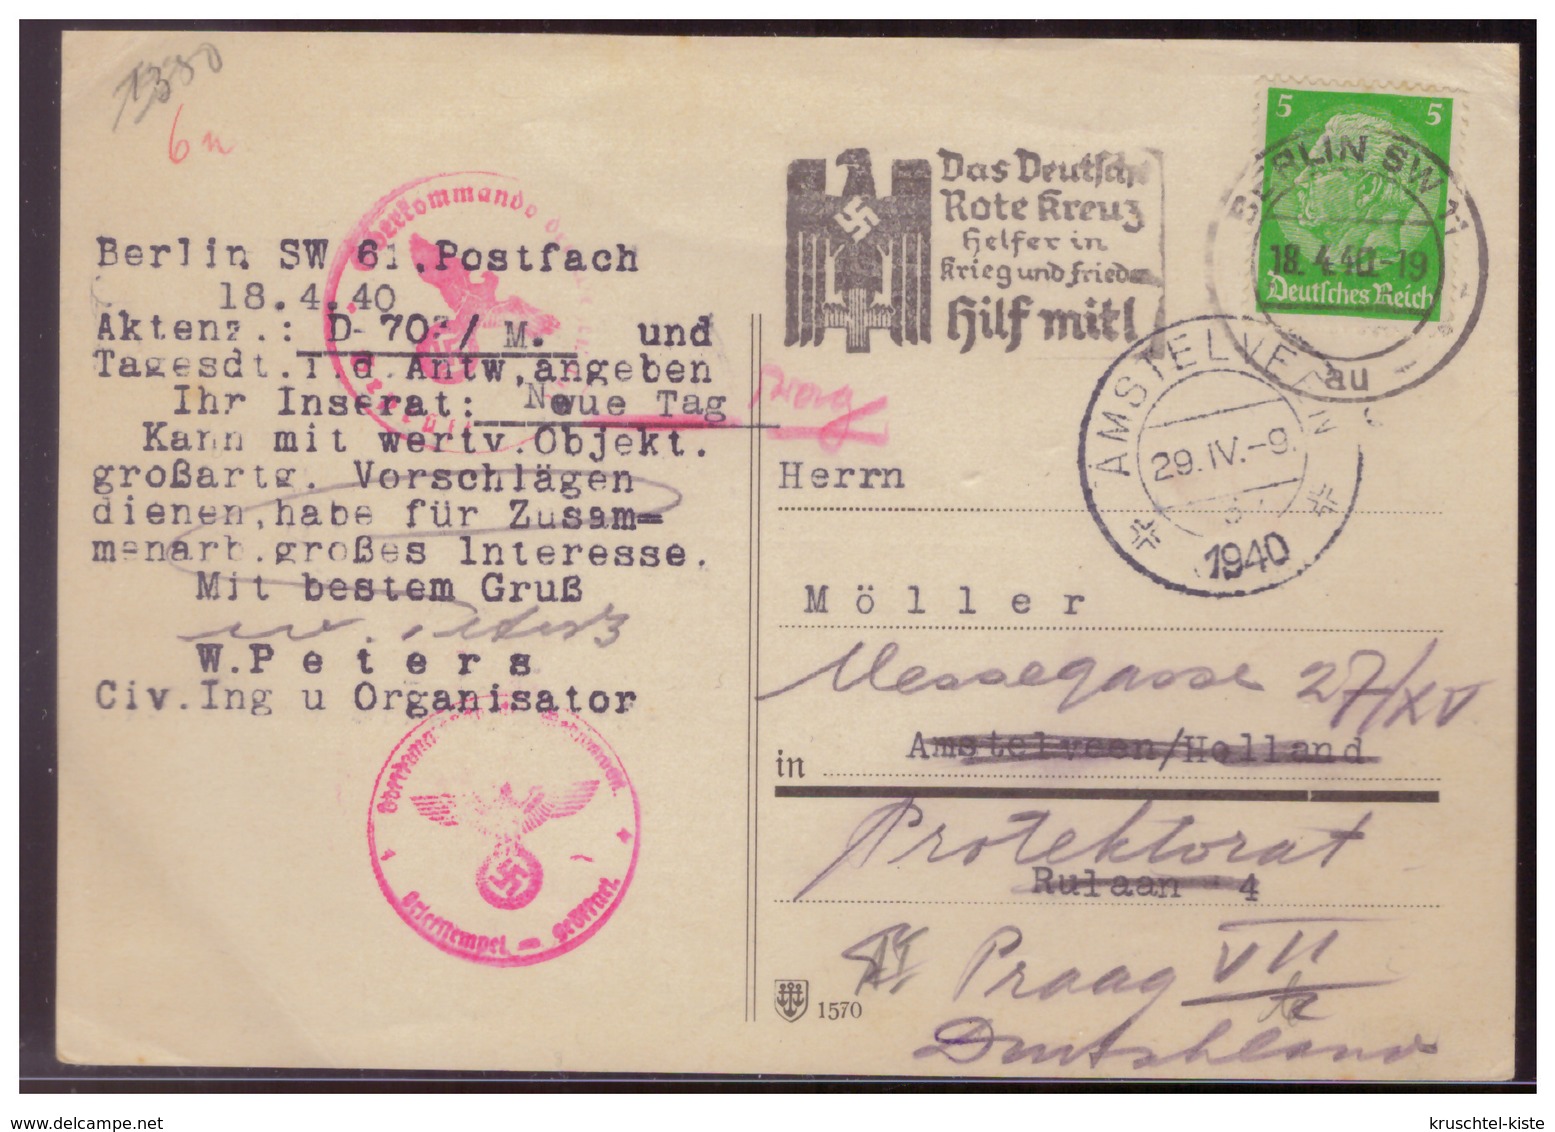 1380
6n
Berlin SW 61.Postfach
18.4.40
Aktenz.: D-703/ M. und
Tagesdt.i.d.Antw,angeben
Ihr Inserat: Neue Tag
Prag
Kann mit wertv.Objekt.
großartg. Vorschlägen
dienen,habe für Zusam=
menarb.großes Interesse.
Mit bestem Gruß
W. Peters
W.P e t e r s
Civ.Ing u Organisator
Oberkommando der
Oberkommando der Wehrmacht
Briefstempel - geöffnet
Das Deutsche
Rote Kreuz
Helfer in
Krieg und Frieden
Hilf mit!
5 5
Deutsches Reich
BERLIN SW 11
18.4.40.-19
au
AMSTELVEEN
29.IV.-9.
3
1940
Herrn
M ö l l e r
Messegasse 27/XV
Amstelveen/Holland
in
Protektorat
Rulaan 4
Praag VII
Deutschland
1570
www.delcampe.net
kruschtel-kiste